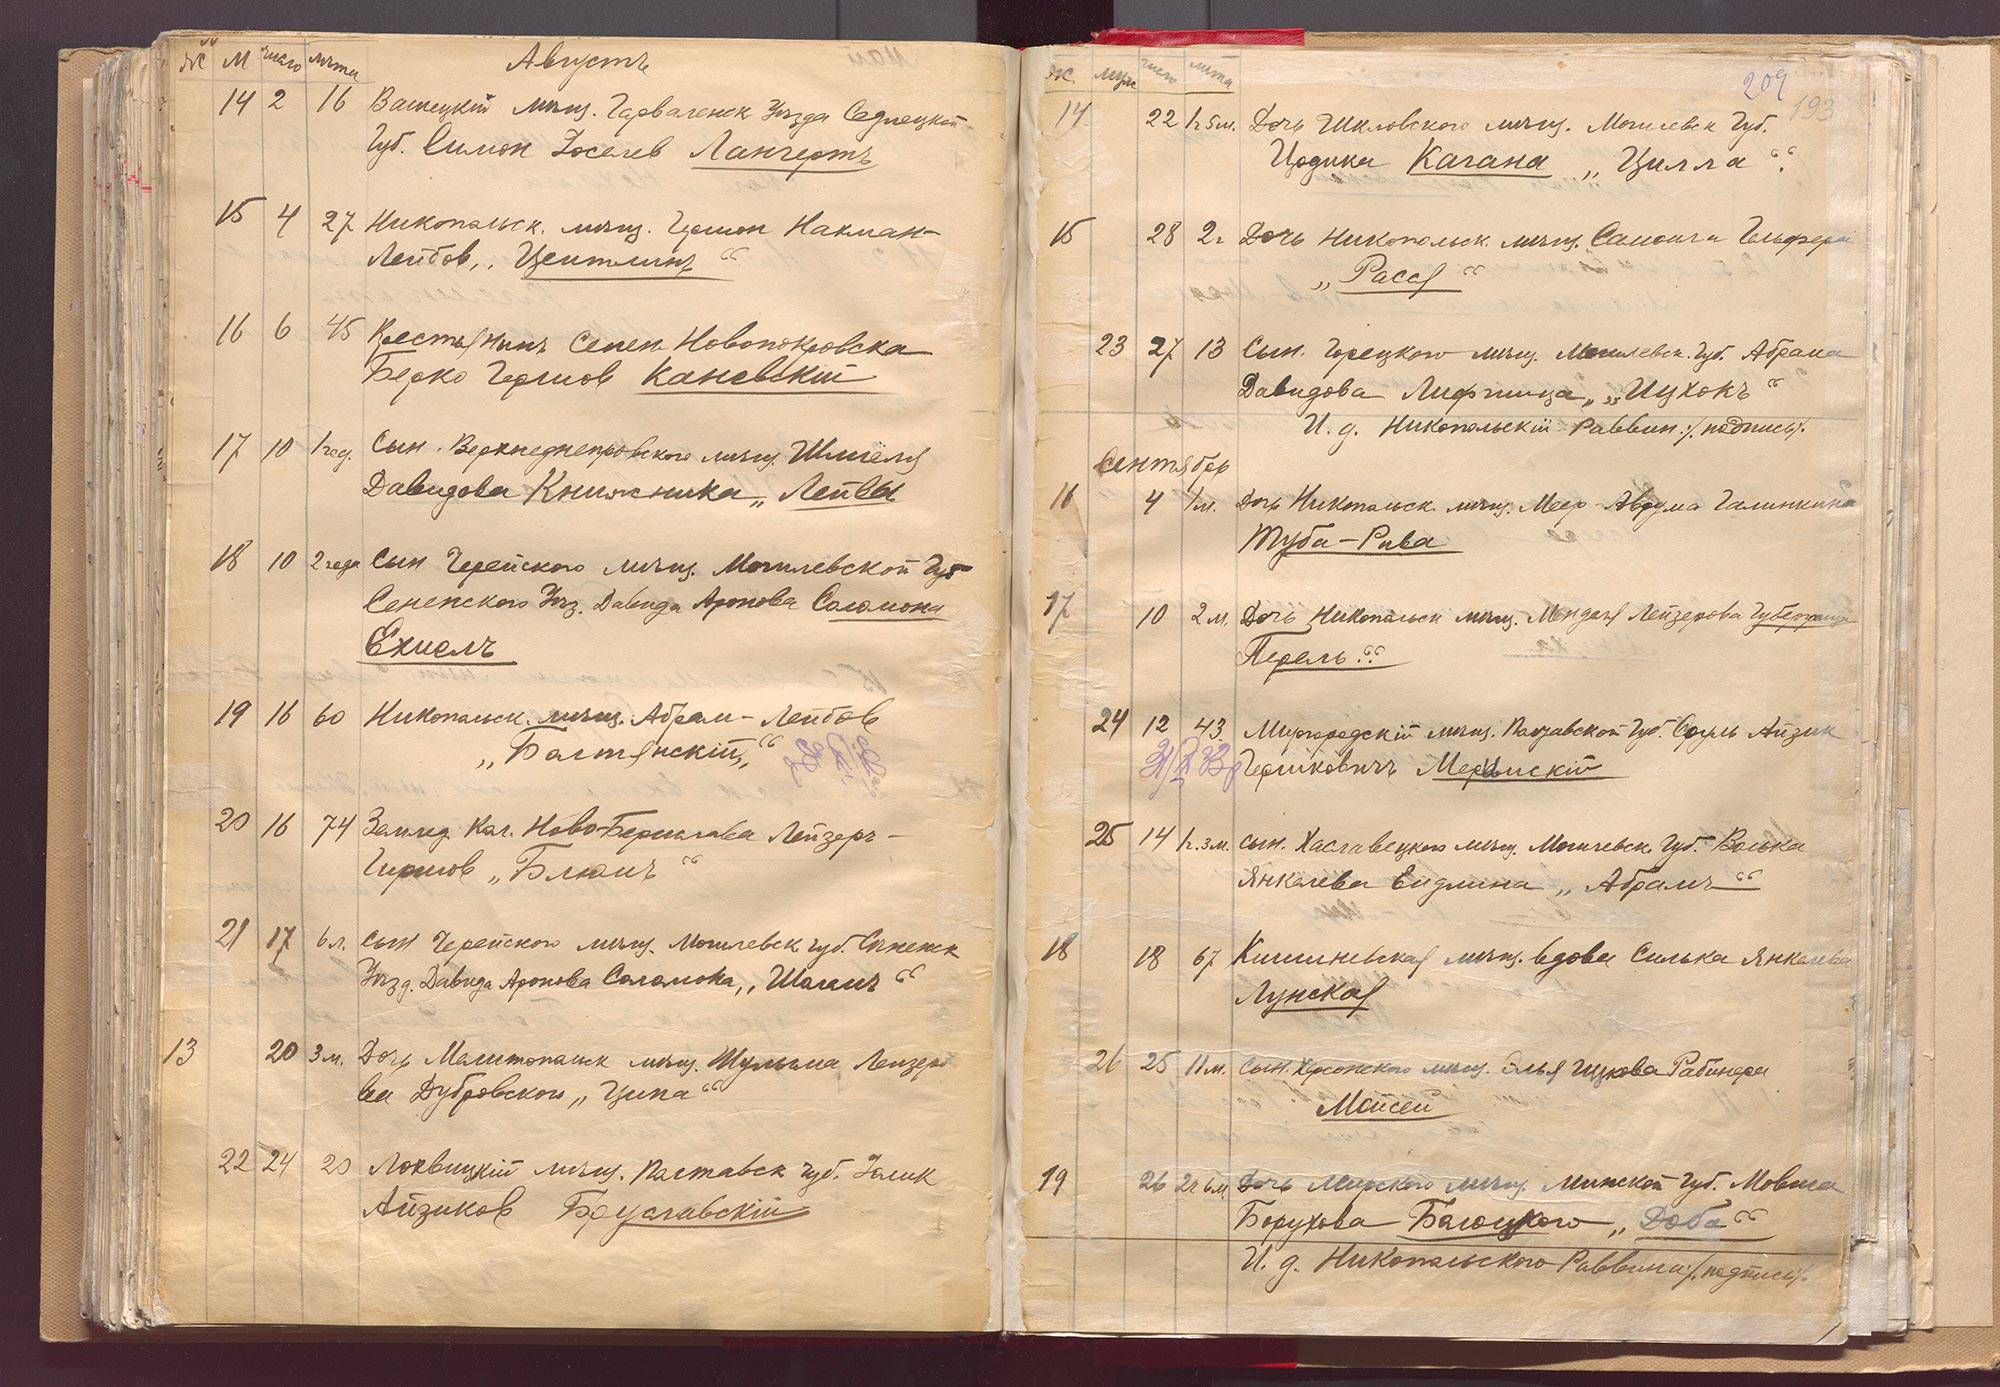 Ж М число лѣта Августъ
14 2 16 мѣщ. Уѣзда Седлецкой
Губ. Симон Іоселев Лангертъ
15 4 27 Никопольск. мѣщ. Гершон Нахман-
Лейбов „Цейтлинъ“
16 6 45 Крестьянинъ Селен. Новопокровска
Берко Гершов Каневскій
17 10 1 год. Сын. Верхнеднепровского мѣщ. Шмеёля
Давидова Книжника „Лейбы
18 10 2 года Сын Черейского мѣщ. Могилевской Губ
Сененского Уѣз. Давида Аронова Соломона
Ехиель
19 16 60 Никопольск. мѣщ. Абрам-Лейбов
„Балтянскій“
20 16 74 Землед. Кол. Ново-Берислава Лейзеръ-
Гиршов „Блюмъ“
21 17 6 л. Сын Черейского мѣщ. Могилевск губ. Сѣненск
Уѣзд. Давида Аронова Соломона „Шолимъ“
13 20 3 м. Дочь Мелитопольск мѣщ. Шульома Лейзеро
ва Дубровского „Ципа“
22 24 20 Лохвицкій мѣщ. Полтавск губ. Зелик
Айзиков Бруславскій
209
193
Ж. муж число лѣта
14 22 1 г 5 м. Дочь Шкловского мѣщ. Могилевск Губ.
Цодика Кагана „Цилла“
15 28 2 г Дочь Никопольск. мѣщ. Самоила Гельфера
„Рася“
23 27 13 Сын. Горецкого мѣщ. Могилевск. Губ. Абрама
Давидова Лифшица „Ицхокъ“
И. д. Никопольскій Раввин: /подпись/.
Сентябрь
16 4 1 м. Дочь Никопольск. мѣщ. Меер-Аврума Галинкина
Туба-Рива
17 10 2 м. Дочь Никопольск мѣщ. Менделя Лейзерова Губергрица
Перель“
24 12 43 Миргородскій мѣщ. Полтавской Губ. Сруль Айзик
Гершковичъ
25 14 1 г. 3 м. сын. Хаславецкого мѣщ. Могилевск. Губ. Волька
Янкелева Ейдлина „Абрамъ“
18 18 67 Кишиневская мѣщ. вдова Силька Янкелева
Лунская
26 25 11 м. сын. Херсонского мѣщ. Элья Ицкова Рабинера
Мойсей
19 26 2 г 6 м Дочь Мирского мѣщ. Минской Губ. Мовша
Борухова Болоцкого „Доба“
И. д. Никопольского Раввина: /подпись/.